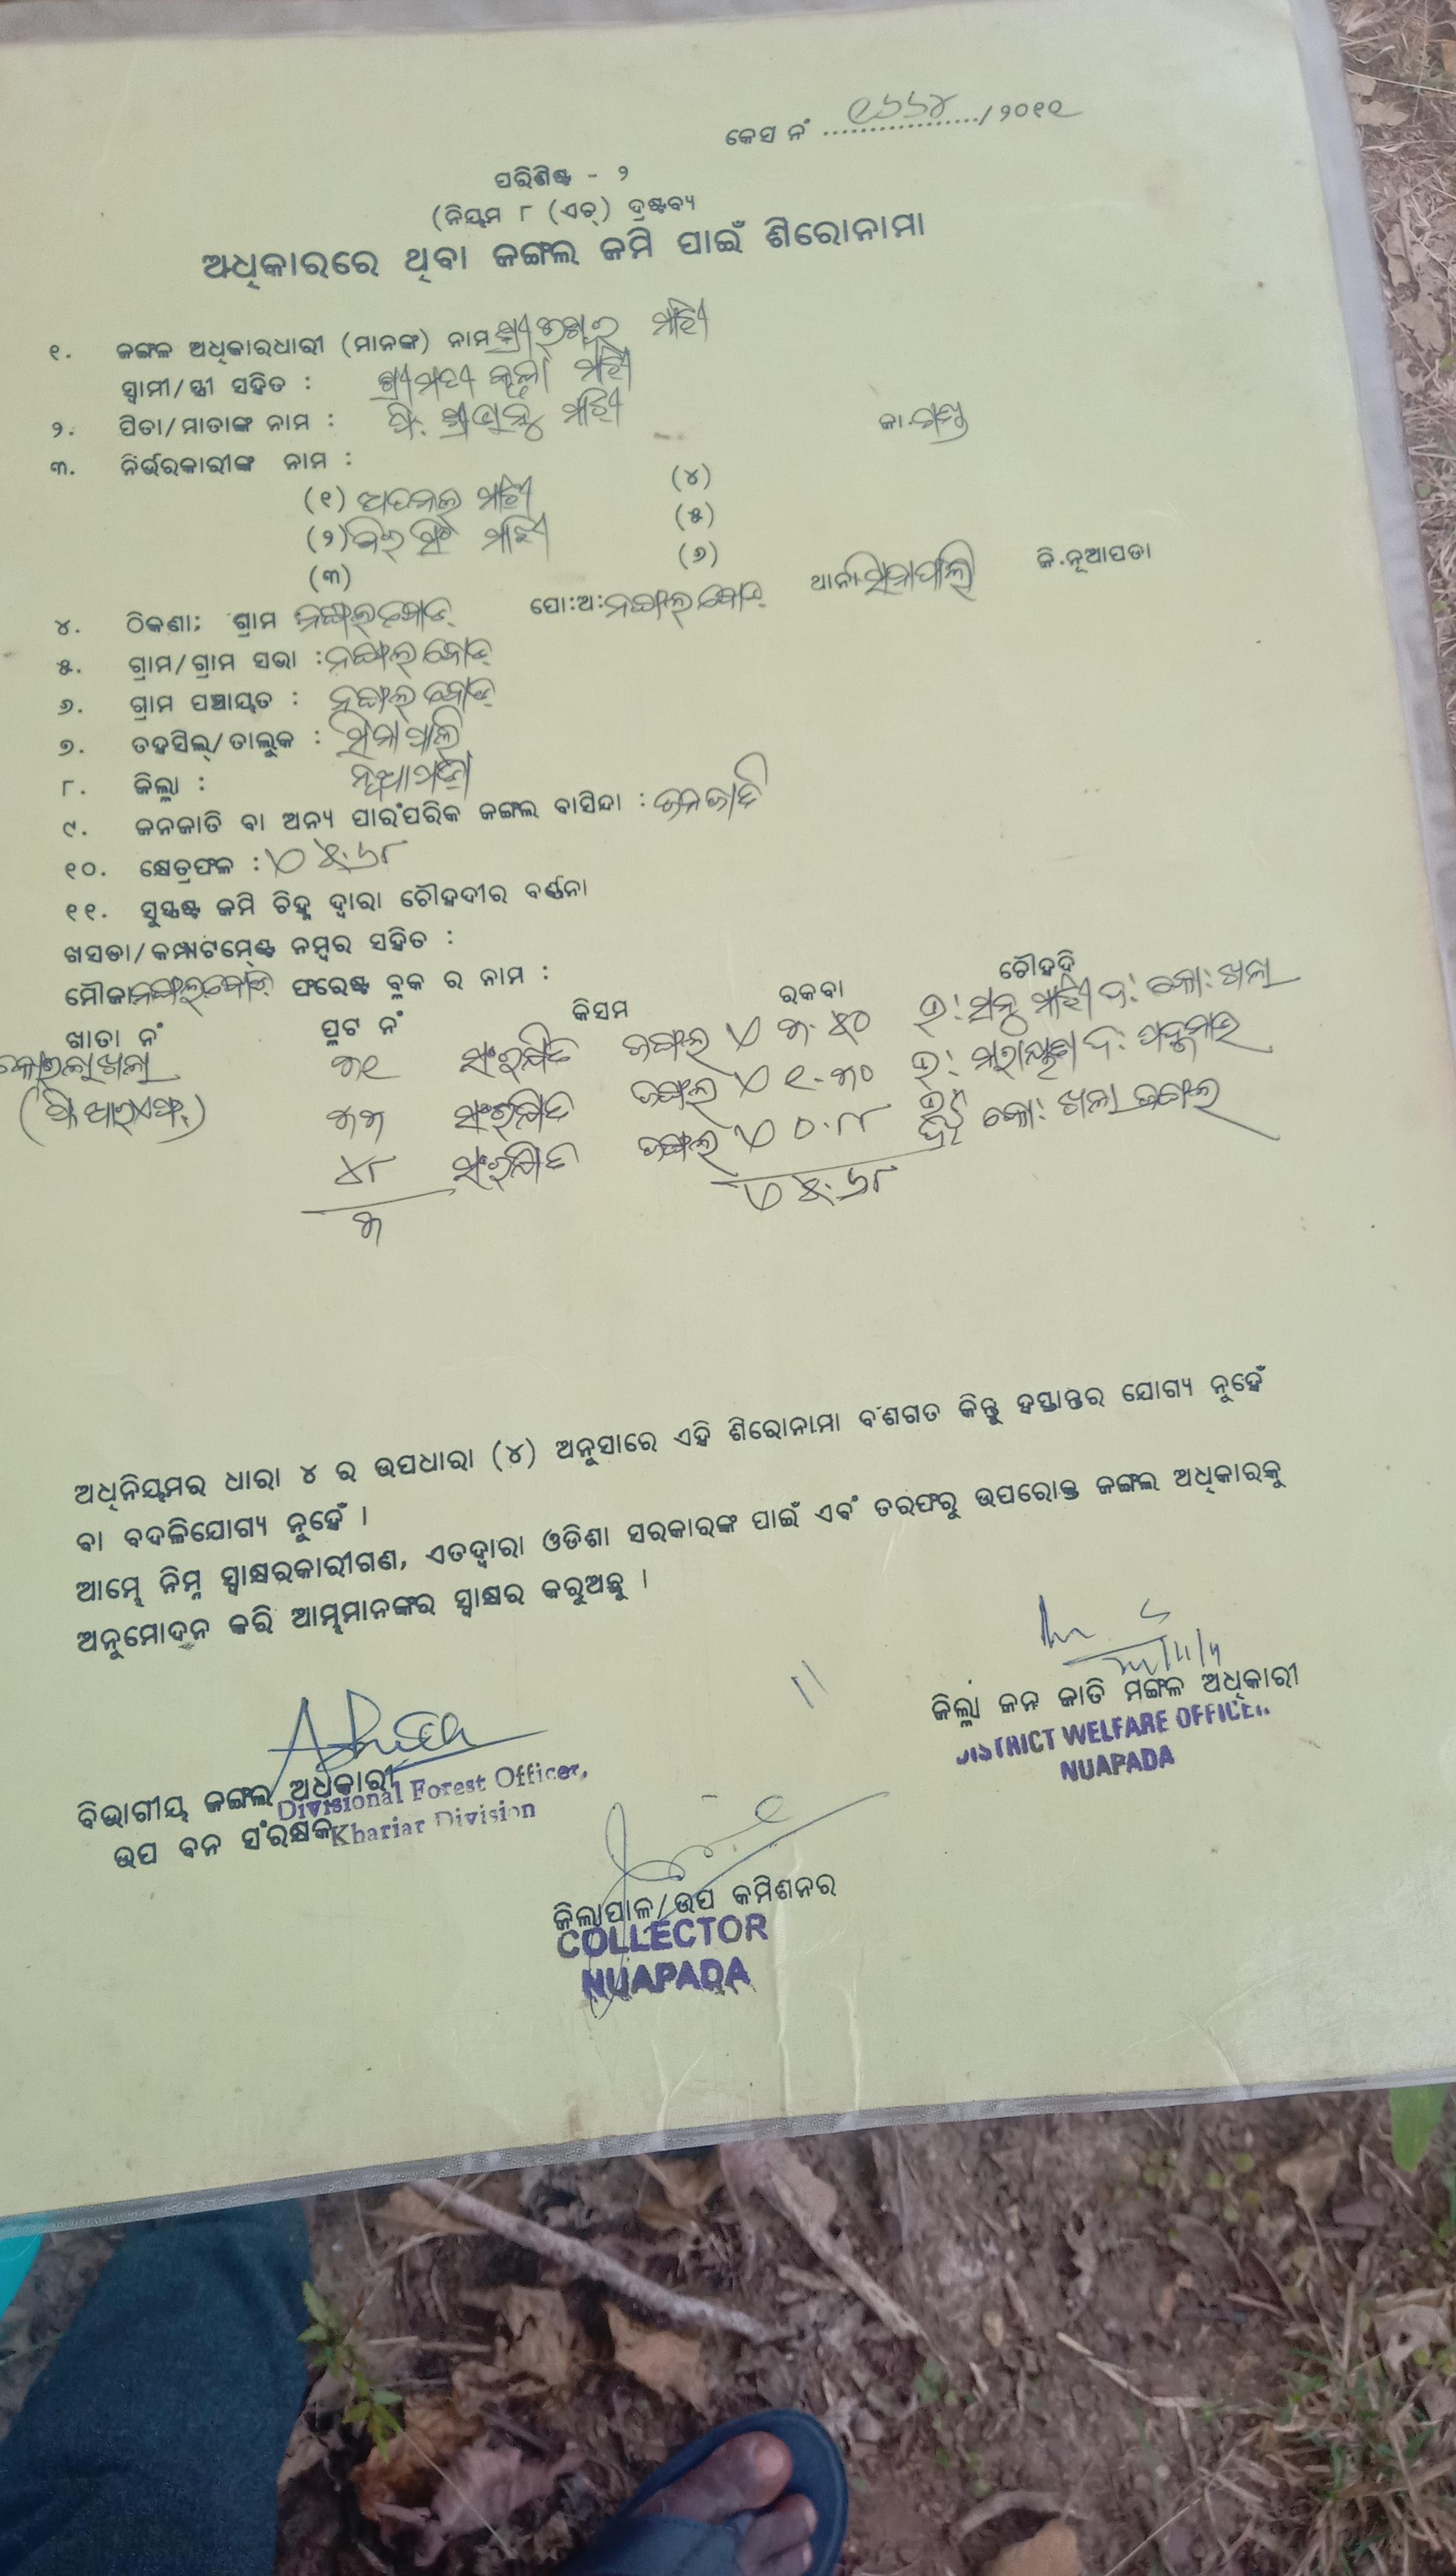 କେସ ନଂ ୧୬୬୪/୨୦୧୧
ପରିଶିଷ୍ଟ - ୨
(ନିୟମ ୮ (ଏଚ୍) ଦ୍ରଷ୍ଟବ୍ୟ
ଅଧିକାରରେ ଥିବା ଜଙ୍ଗଲ ଜମି ପାଇଁ ଶିରୋନାମା
୧. ଜଙ୍ଗଳ ଅଧିକାରଧାରୀ (ମାନଙ୍କ) ନାମ ଶ୍ରୀ ମାଝୀ
ସ୍ୱାମୀ/ସ୍ତ୍ରୀ ସହିତ : ଶ୍ରୀମତୀ ମାଝୀ
୨. ପିତା/ମାତାଙ୍କ ନାମ : ପି. ମାଝୀ ଜା.
୩. ନିର୍ଭରକାରୀଙ୍କ ନାମ :
(୧) ମାଝୀ (୪)
(୨) ମାଝୀ (୫)
(୩) (୬)
୪. ଠିକଣା: ଗ୍ରାମ ନଙ୍ଗଲବୋଡ଼ ପୋ:ଅ: ନଙ୍ଗଲବୋଡ଼ ଥାନା ସିନାପାଲି ଜି.ନୂଆପଡା
୫. ଗ୍ରାମ/ଗ୍ରାମ ସଭା : ନଙ୍ଗଲବୋଡ଼
୬. ଗ୍ରାମ ପଞ୍ଚାୟତ : ନଙ୍ଗଲବୋଡ଼
୭. ତହସିଲ୍/ତାଲୁକ : ସିନାପାଲି
୮. ଜିଲ୍ଲା : ନୂଆପଡ଼ା
୯. ଜନଜାତି ବା ଅନ୍ୟ ପାରଂପରିକ ଜଙ୍ଗଲ ବାସିନ୍ଦା : ଜନଜାତି
୧୦. କ୍ଷେତ୍ରଫଳ : ୫.୬୮
୧୧. ସୁସ୍ପଷ୍ଟ ଜମି ଚିହ୍ନ ଦ୍ୱାରା ଚୌହଦୀର ବର୍ଣ୍ଣନା
ଖସଡା/କମ୍ପାଟମେଣ୍ଟ ନମ୍ବର ସହିତ :
ମୌଜା ନଙ୍ଗଲବୋଡ଼ ଫରେଷ୍ଟ ବ୍ଲକ ର ନାମ :
ଖାତା ନଂ ପ୍ଲଟ ନଂ କିସମ ରକବା ଚୌହଦି
୩୧ ସଂରକ୍ଷିତ ଜଙ୍ଗଲ ୩.୫୦ ଉ: ମାଝୀ ଦ: କୋ: ଖଲା
(ପି ଆରଏଫ୍) ୩୩ ସଂରକ୍ଷିତ ଜଙ୍ଗଲ ୧.୩୦ ଉ: ଦ:
୪୮ ସଂରକ୍ଷିତ ଜଙ୍ଗଲ ୦.୮୮ କୋ: ଖଲା ଜଙ୍ଗଲ
୩ ୫.୬୮
ଅଧିନିୟମର ଧାରା ୪ ର ଉପଧାରା (୪) ଅନୁସାରେ ଏହି ଶିରୋନାମା ବଂଶଗତ କିନ୍ତୁ ହସ୍ତାନ୍ତର ଯୋଗ୍ୟ ନୁହେଁ
ବା ବଦଳିଯୋଗ୍ୟ ନୁହେଁ ।
ଆମ୍ଭେ ନିମ୍ନ ସ୍ୱାକ୍ଷରକାରୀଗଣ, ଏତଦ୍ୱାରା ଓଡିଶା ସରକାରଙ୍କ ପାଇଁ ଏବଂ ତରଫରୁ ଉପରୋକ୍ତ ଜଙ୍ଗଲ ଅଧିକାରକୁ
ଅନୁମୋଦନ କରି ଆମ୍ଭମାନଙ୍କର ସ୍ୱାକ୍ଷର କରୁଅଛୁ ।
ଜିଲ୍ଲା ଜନ ଜାତି ମଙ୍ଗଳ ଅଧିକାରୀ
DISTRICT WELFARE OFFICER
NUAPADA
ବିଭାଗୀୟ ଜଙ୍ଗଲ ଅଧିକାରୀ
Divisional Forest Officer,
ଉପ ବନ ସଂରକ୍ଷକ
Khariar Division
ଜିଲ୍ଲାପାଳ/ଉପ କମିଶନର
COLLECTOR
NUAPADA